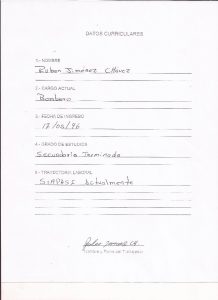 DATOS CURRICULARES
1.- NOMBRE
Ruben Jimenez Chavez
2.- CARGO ACTUAL
Bombero
3.- FECHA DE INGRESO
17/06/96
4.- GRADO DE ESTUDIOS
Secundaria Terminada
5.- TRAYECTORIA LABORAL
SIAPASI Actualmente
Nombre y Firma del Trabajador